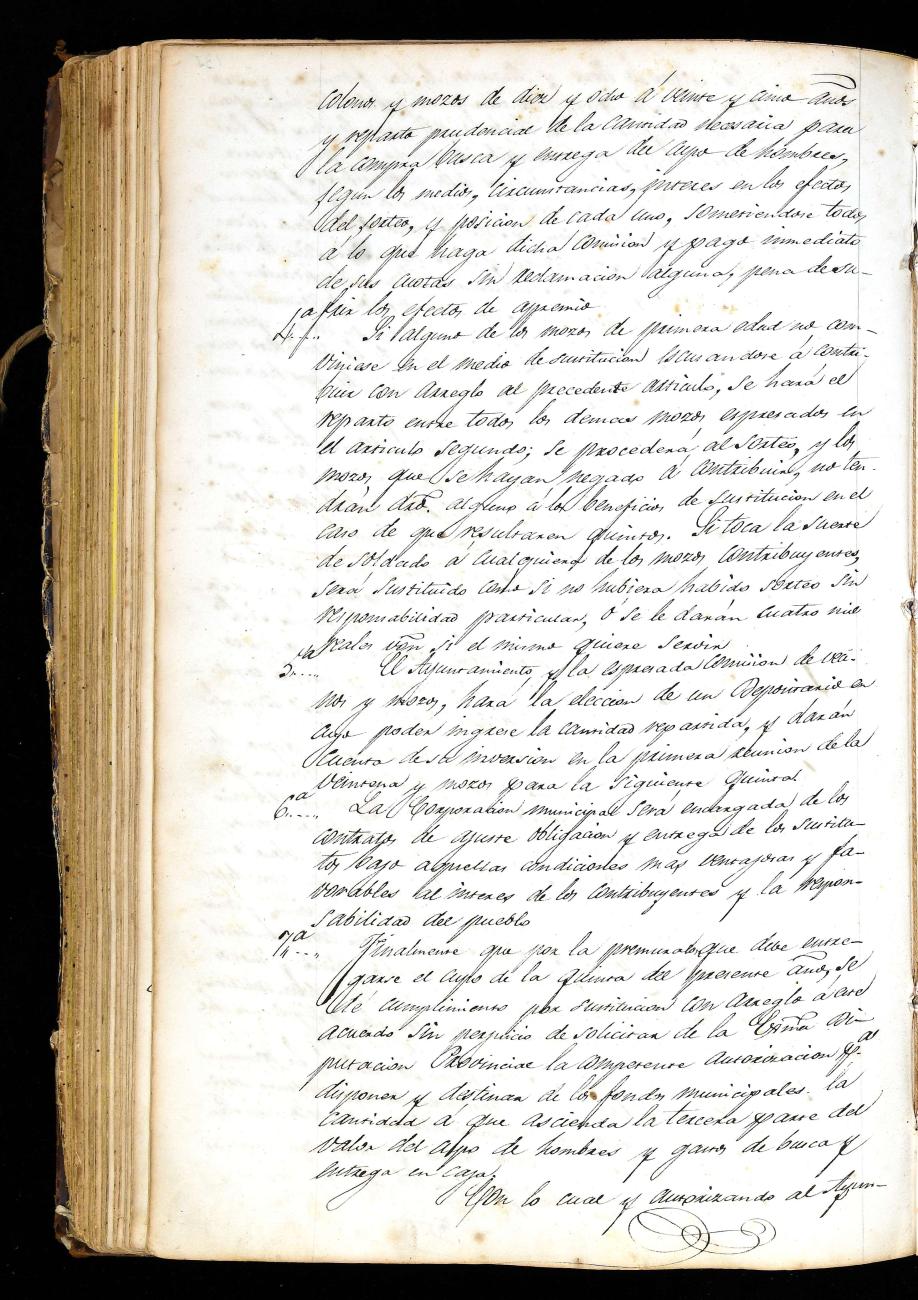 colonos y mozos de diez y ocho á veinte y cinco años
y reparto prudencial de la cantidad necesaria para
la compra busca y entrega del cupo de hombres,
segun los medios, circunstancias, interes en los efectos
del sorteo, y posicion de cada uno, sometiendose todos
á lo que haga dicha comision y pago inmediato
de sus cuotas sin reclamacion alguna, pena de su-
frir los efectos de apremio
4ª.... Si alguno de los mozos de primera edad no com-
viniese en el medio de sustitucion escusandose á contri-
buir con arreglo al precedente articulo, se hará el
reparto entre todos los demas mozos espresados en
el articulo segundo; se procederá al sorteo, y los
mozos que se hayan negado á contribuir, no ten-
drán dro. alguno á los beneficios de sustitucion en el
caso de que resultaren quintos. Si toca la suerte
de soldado á cualquiera de los mozos contribuyentes,
será sustituido como si no hubiera habido sorteo sin
responsabilidad particular, ó se le darán cuatro mil
reales von si el mismo quiere servir
5ª.... El Ayuntamiento y la espresada comision de veci-
nos y mozos, hará la eleccion de un Depositario en
cuyo poder ingrese la cantidad repartida, y darán
cuenta de su inversion en la primera reunion de la
veintena y mozos para la siguiente quinta.
6ª.... La Corporacion municipal será encargada de los
contratos de ajuste obligacion y entrega de los sustitu-
tos bajo aquellas condiciones mas ventajosas y fa-
vorables al interes de los contribuyentes y la respon-
sabilidad del pueblo
7ª... Finalmente que por la premura con que debe entre-
garse el cupo de la quinta del presente año, se
dé cumplimiento por sustitucion con arreglo á este
acuerdo sin perjuicio de solicitar de la Exma Di-
putacion Provincial la competente autorizacion pª
disponer y destinar de los fondos municipales la
cantidad á que ascienda la tercera parte del
valor del cupo de hombres y gastos de busca y
entrega en caja.
Con lo cual y autorizando al Ayun-